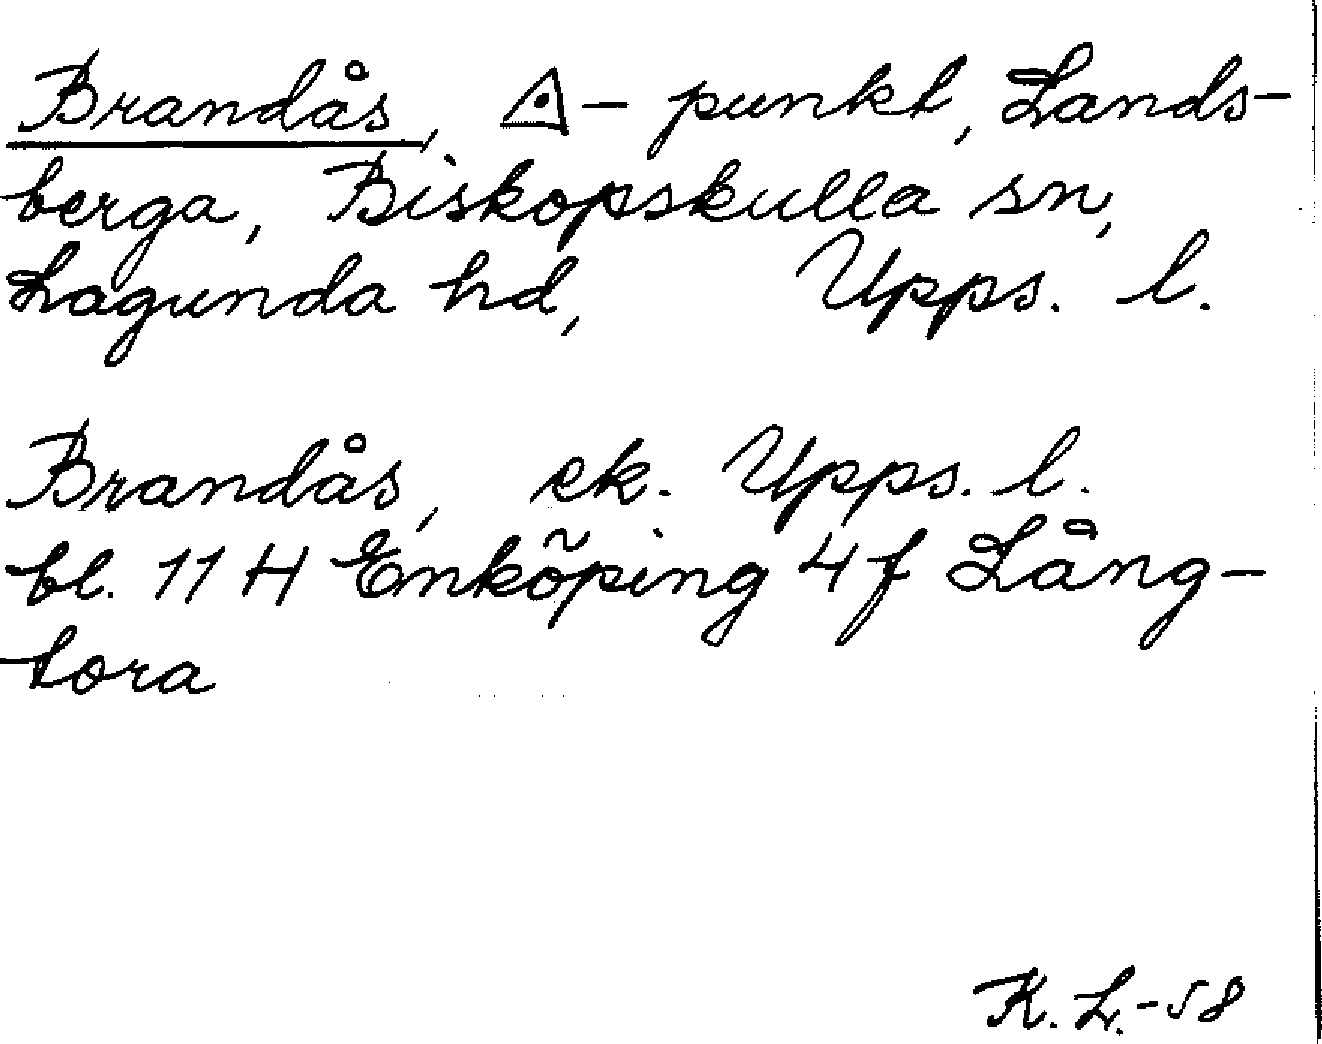 Brandås, △-punkt, Lands-
berga, Biskopskulla sn,
Lagunda hd, Upps. l.
Brandås, ek. Upps. l.
bl. 11 H Enköping 4 f Lång-
tora
K. L.-58